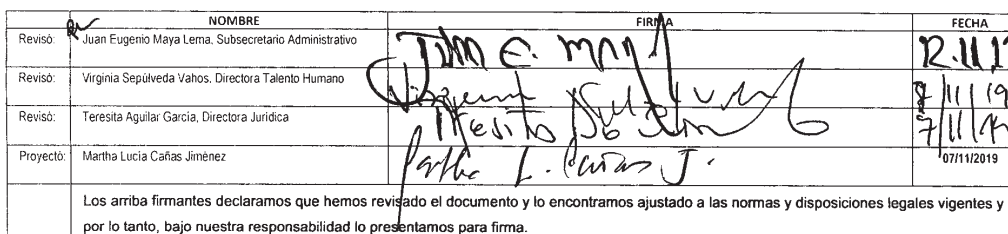 NOMBRE FIRMA FECHA
Revisó: Juan Eugenio Maya Lema, Subsecretario Administrativo
Revisó: Virginia Sepúlveda Vahos, Directora Talento Humano 7/11/19
Revisó: Teresita Aguilar García, Directora Jurídica 7/11/19
Proyectó: Martha Lucía Cañas Jiménez Martha L. Cañas J. 07/11/2019
Los arriba firmantes declaramos que hemos revisado el documento y lo encontramos ajustado a las normas y disposiciones legales vigentes y
por lo tanto, bajo nuestra responsabilidad lo presentamos para firma.